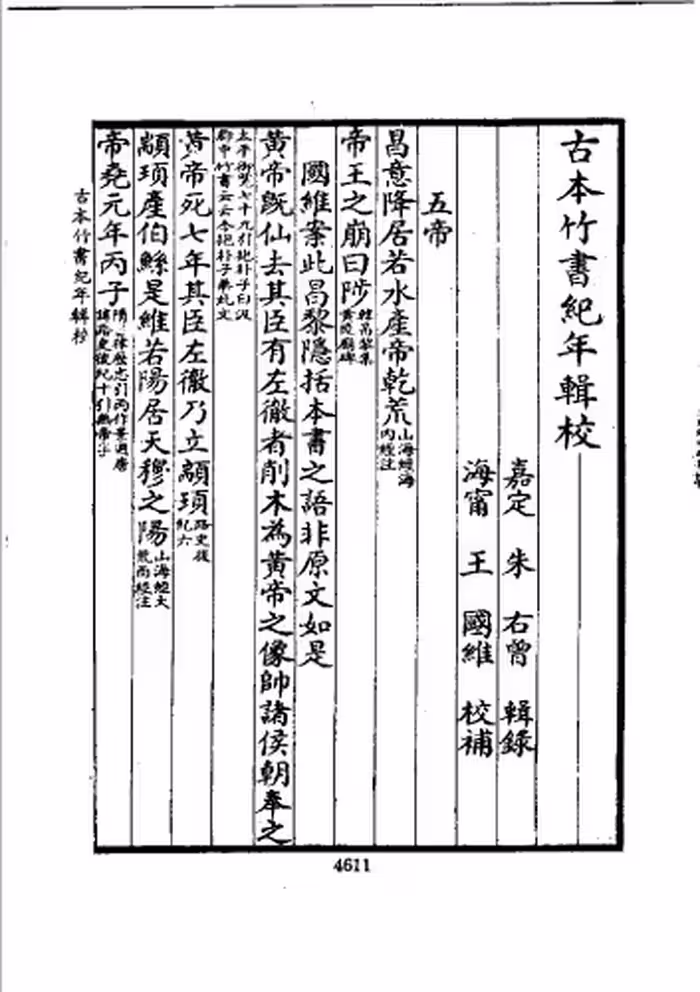 古本竹書紀年輯校
嘉定 朱右曾 輯錄
海甯 王國維 校補
五帝
昌意降居若水產帝乾荒山海經海內經注
帝王之崩曰陟韓昌黎集黃陵廟碑
國維案此昌黎隱括本書之語非原文如是
黃帝旣仙去其臣有左徹者削木為黃帝之像帥諸侯朝奉之
太平御覽七十九引抱朴子曰汲郡中竹書云云今抱朴子無此文
黃帝死七年其臣左徹乃立顓頊路史後紀六
顓頊產伯鯀是維若陽居天穆之陽山海經大荒西經注
帝堯元年丙子隋書律歷志引 丙作景避唐諱路史後紀十引無帝子
古本竹書紀年輯校
4611